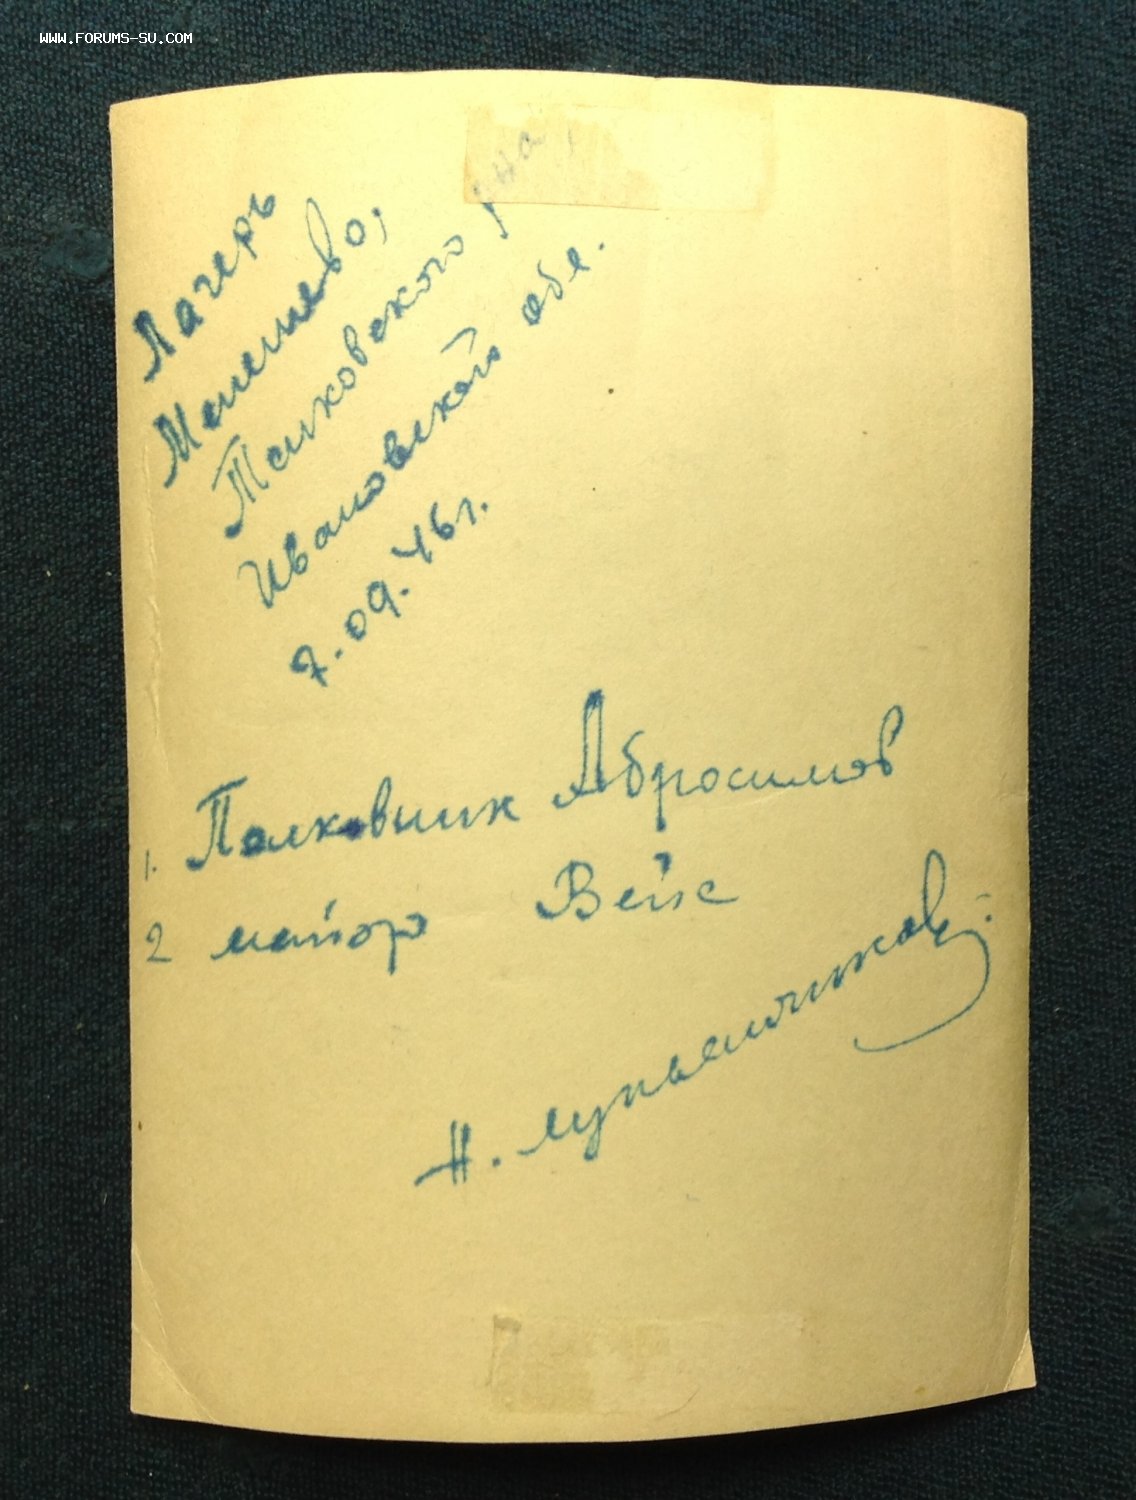 WWW.FORUMS-SU.COM
Лагерь
Тейковского р-на,
Ивановской обл.
7.09.46г.
1. Полковник Абросимов
2 майор Вейс
Н.